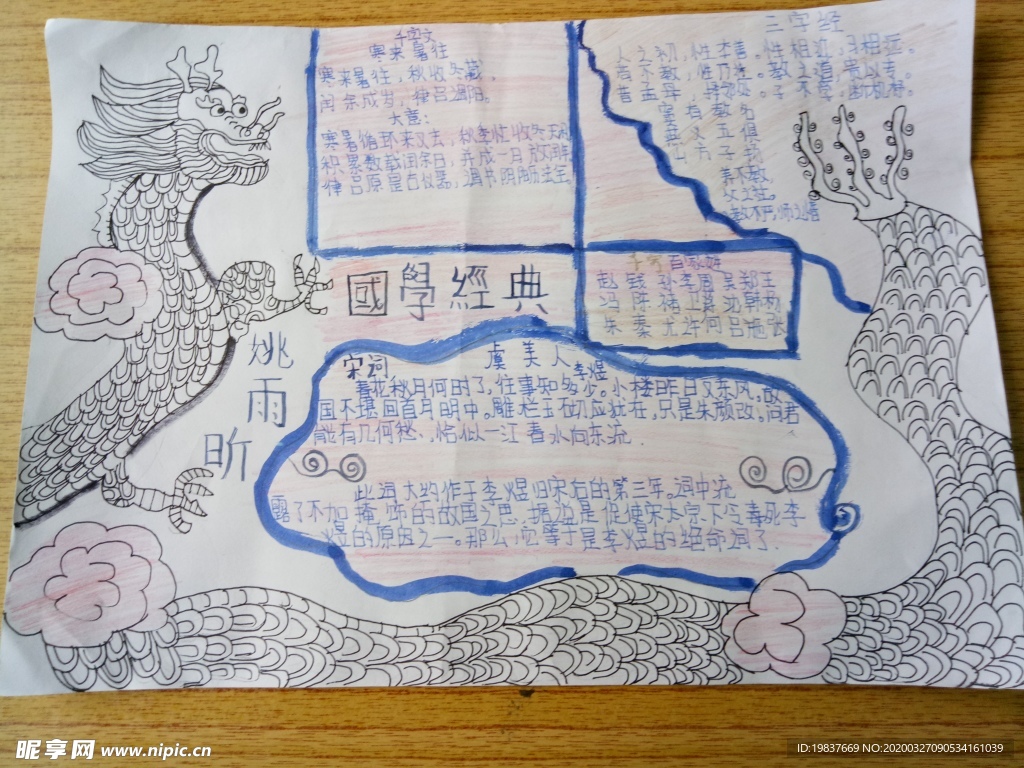 千字文
寒来暑往
寒来暑往，秋收冬藏。
闰余成岁，律吕调阳。
大意：
寒暑循环来又去，秋季忙收冬天
积累数载闰余日，并成一月放
律吕原是古仪器，调节阴阳
三字经
人之初，性本善。性相近，习相远。
苟不教，性乃迁。教之道，贵以专。
昔孟母，择邻处。子不学，断机杼。
窦
教
五
养不教
父之过。
教不严，师之惰
百家姓
赵钱孙李周吴郑王
冯陈褚卫蒋沈韩杨
朱秦尤许何吕施张
國學經典
姚雨昕
宋词 虞美人 李煜
春花秋月何时了，往事知多少。小楼昨日又东风，故
国不堪回首月明中。雕栏玉砌应犹在，只是朱颜改。问君
能有几何愁，恰似一江春水向东流.
此词大约作于李煜归宋后的第三年。词中流
露了不加掩饰的故国之思，据说是促使宋太宗下令毒死李
煜的原因之一。那么，它等于是李煜的绝命词了.
昵享网 www.nipic.cn
ID:19837669 NO:20200327090534161039